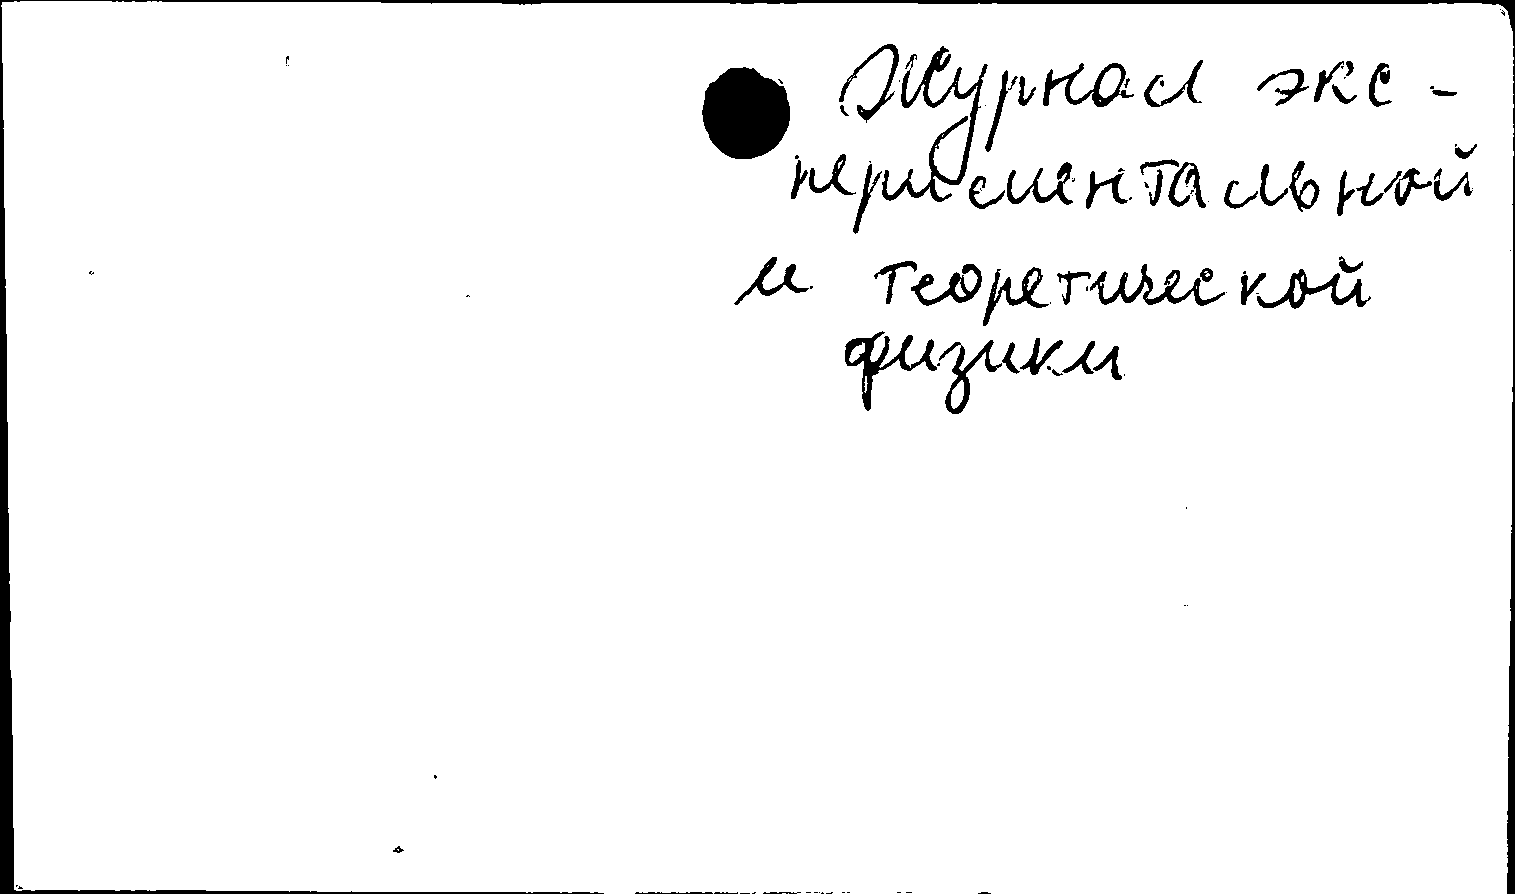 Журнал экс-
периментальной
и теоретической
физики